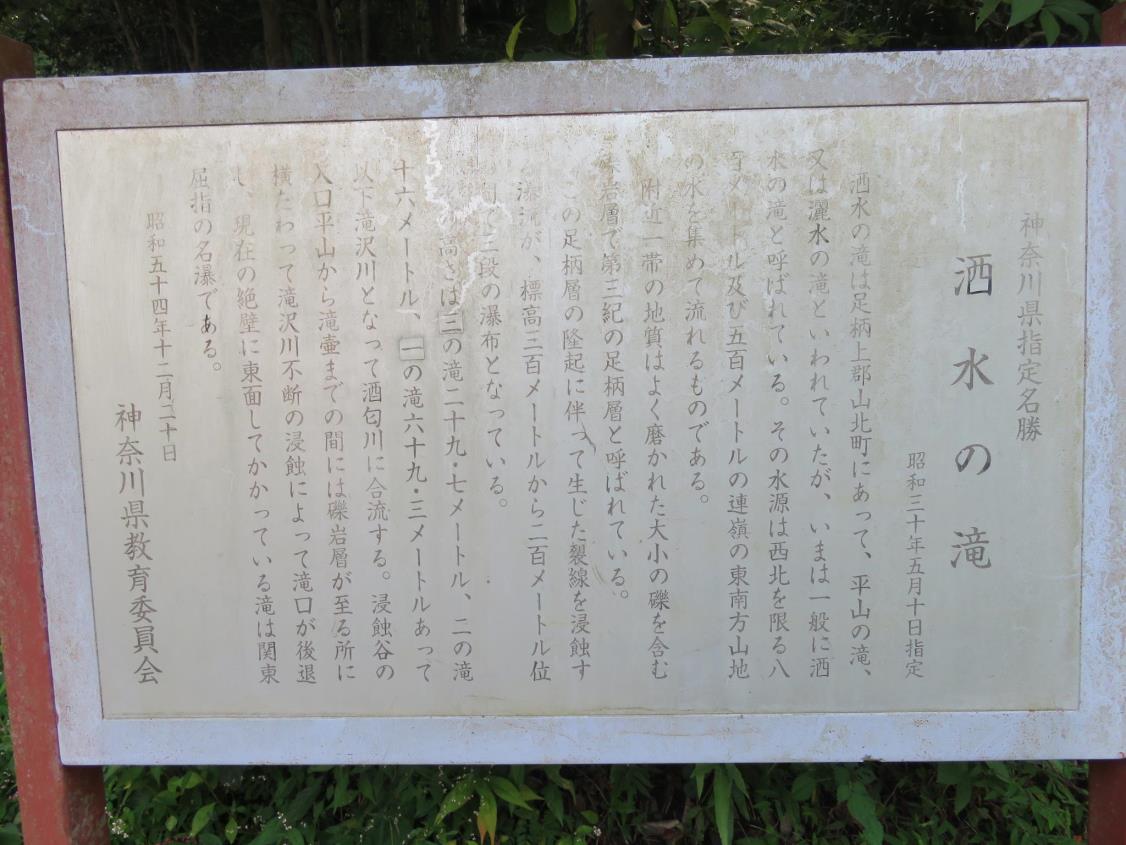 神奈川県指定名勝
洒水の滝
昭和三十年五月十日指定
洒水の滝は足柄上郡山北町にあって、平山の滝、
又は灑水の滝といわれていたが、いまは一般に洒
水の滝と呼ばれている。その水源は西北を限る八
百メートル及び五百メートルの連嶺の東南方山地
の水を集めて流れるものである。
附近一帯の地質はよく磨かれた大小の礫を含む
礫岩層で第三紀の足柄層と呼ばれている。
この足柄層の隆起に伴って生じた裂線を浸蝕す
瀑流が、標高三百メートルから二百メートル位
間で三段の瀑布となっている。
高さは三の滝二十九・七メートル、二の滝
十六メートル、一の滝六十九・三メートルあって
以下滝沢川となって酒匂川に合流する。浸蝕谷の
入口平山から滝壷までの間には礫岩層が至る所に
横たわって滝沢川不断の浸蝕によって滝口が後退
し、現在の絶壁に東面してかかっている滝は関東
屈指の名瀑である。
昭和五十四年十二月二十日
神奈川県教育委員会